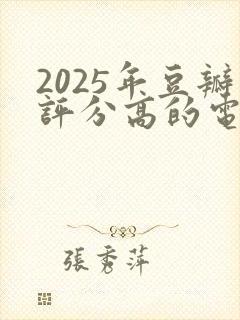 2025年豆瓣
評分高的電
張秀萍